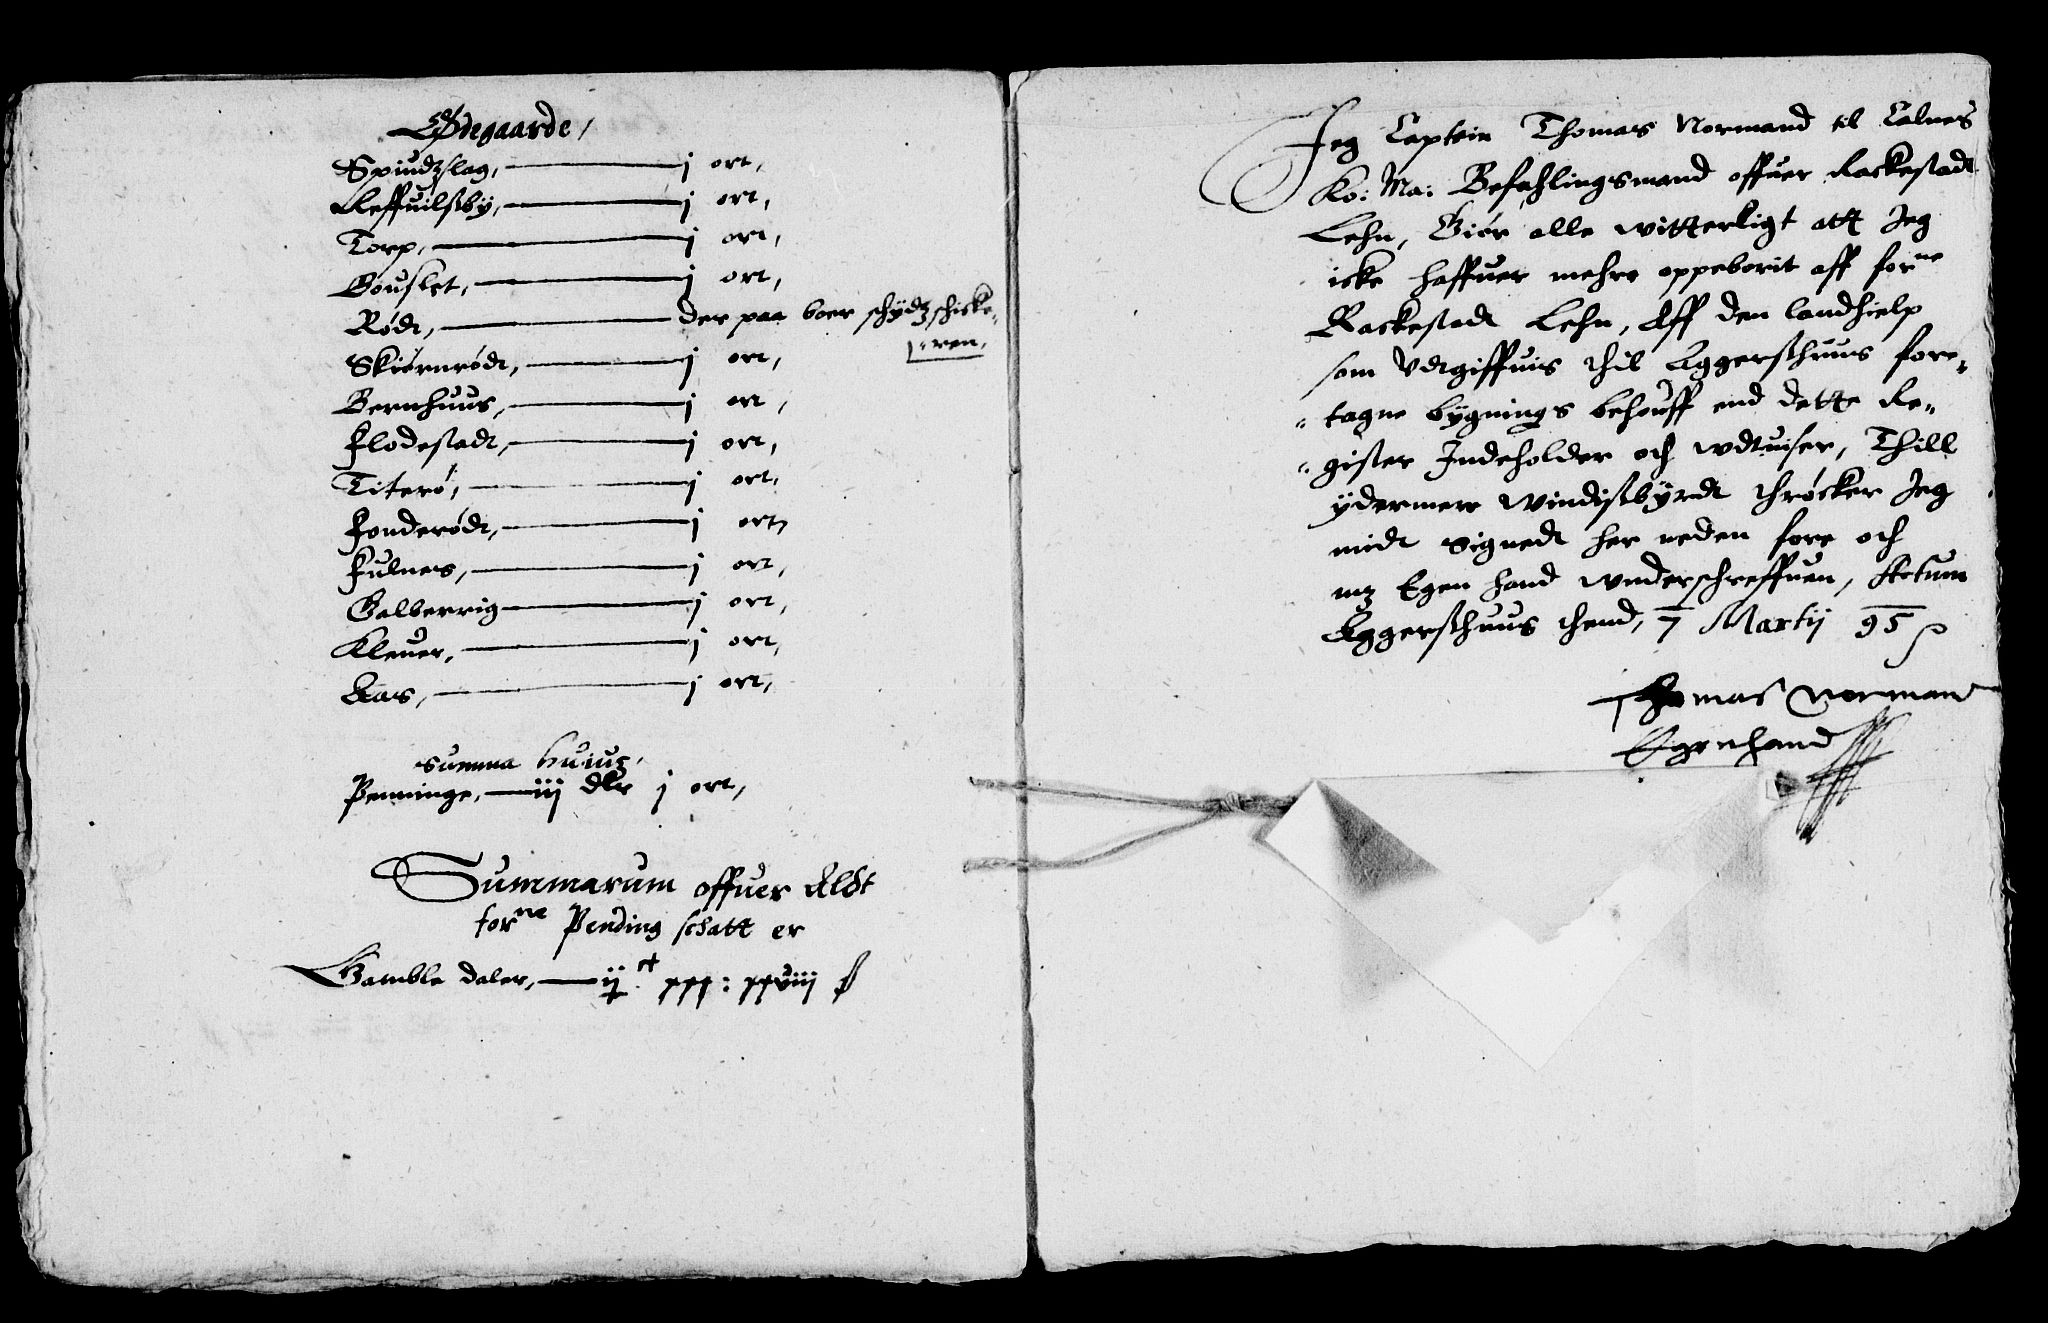 Ødegaarde,
Spiudzslag, j ort,
Reffuilsby, j ort,
Torp, j ort,
Gouslet, j ort,
Rødt, der paa boer schydz schiske-
-ren,
Skiørnrødt, j ort,
Bernhuus, j ort,
Flodestadt, j ort,
Titerø, j ort,
Fonderødt, j ort,
Fulnes, j ort,
Galberrig j ort,
Kleuer, j ort,
Aas, j ort,
Summa huius,
Penninge, iij dlr j ort,
Summarum offuer Aldt
forne Pending schatt er
Gamble daler, ij ct xxx: xxviij ß
Jeg Captein Thomas Normand til Calnes
Ko: Ma: Befahlingsmand offuer Rackestadt
Lehn, Giør alle witterligt att Jeg
icke haffuer mehre oppeborit aff forne
Rackestadt Lehn, Aff den landhielp
som Vdtgiffuis thil Aggerschuus fore-
-tagne bygnings behouff end dette Re-
-gister Indeholder och wdtuiser, Thill
ydermere windisbyrdt thrøcker Jeg
midt Signedt her neden fore och
mz Egen hand wnderschreffuen, Actum
Aggerschuus thend, 7 Martij 95
Thomas Norman
Egenhand